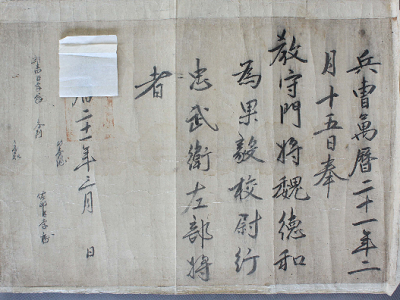 兵曹萬曆二十一年二
月十五日奉
教守門將魏德和
為果毅校尉行
忠武衛左部將
者
曆二十一年二月 日